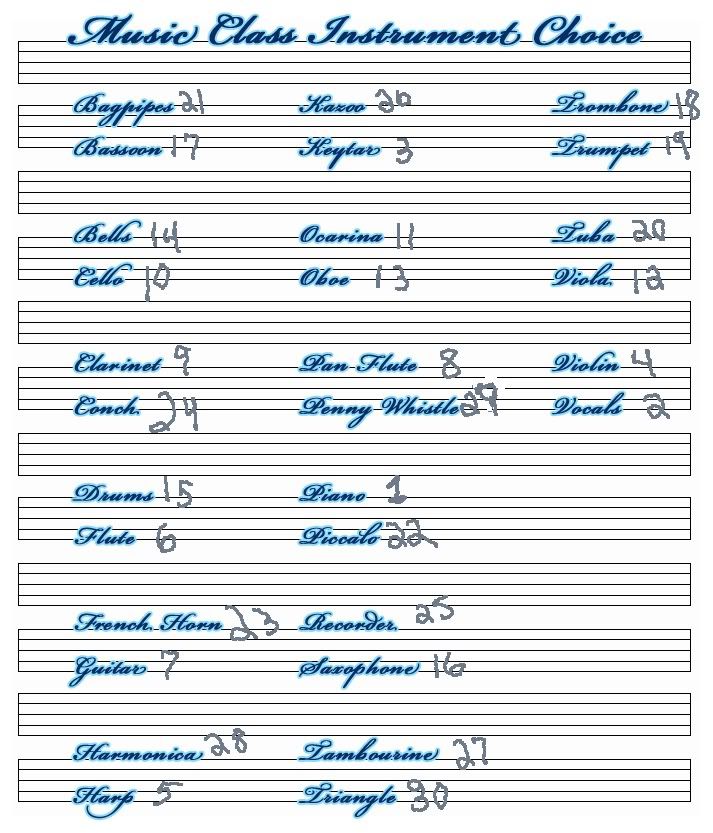 Music Class Instrument Choice
Bagpipes 21 Kazoo 26 Trombone 18
Bassoon 17 Keytar 3 Trumpet 19
Bells 14 Ocarina 11 Tuba 20
Cello 10 Oboe 13 Viola 12
Clarinet 9 Pan Flute 8 Violin 4
Conch 24 Penny Whistle 29 Vocals 2
Drums 15 Piano 1
Flute 6 Piccalo 22
French Horn 23 Recorder 25
Guitar 7 Saxophone 16
Harmonica 28 Tambourine 27
Harp 5 Triangle 30